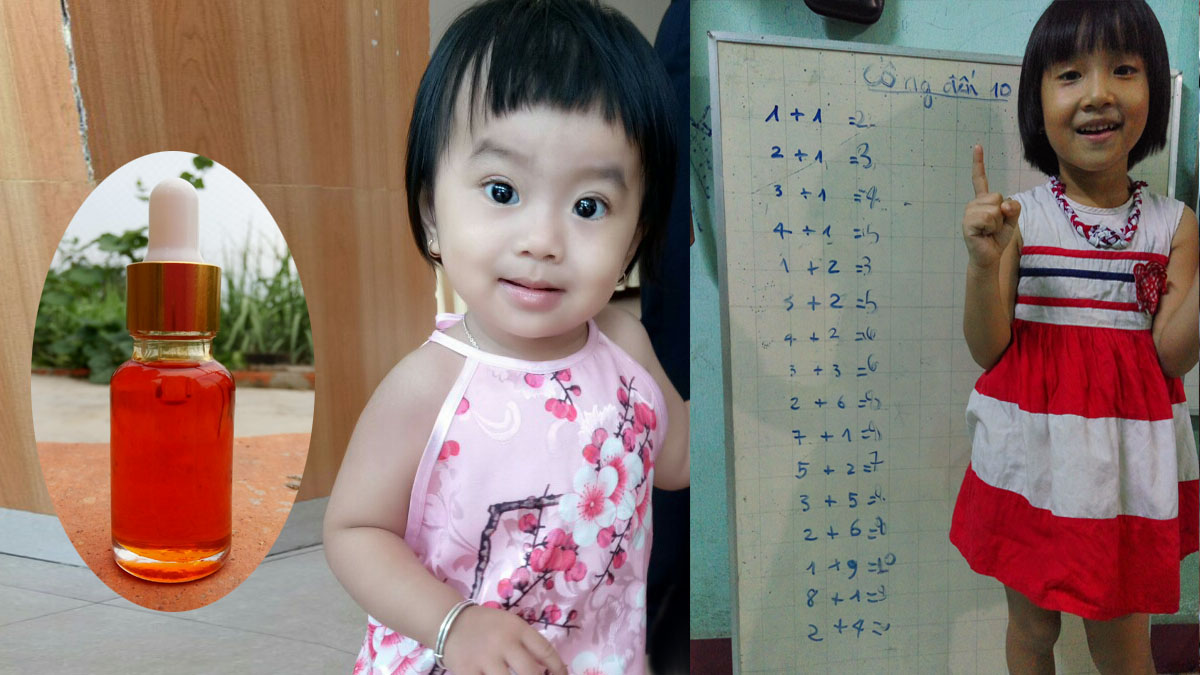 Cộng đến 10
1 + 1 = 2
2 + 1 = 3
3 + 1 = 4
4 + 1 = 5
1 + 2 = 3
3 + 2 = 5
4 + 2 = 6
3 + 3 = 6
2 + 6 =
7 + 1 =
5 + 2 = 7
3 + 5 =
2 + 6 =
1 + 9 = 10
8 + 1 =
2 + 4 =